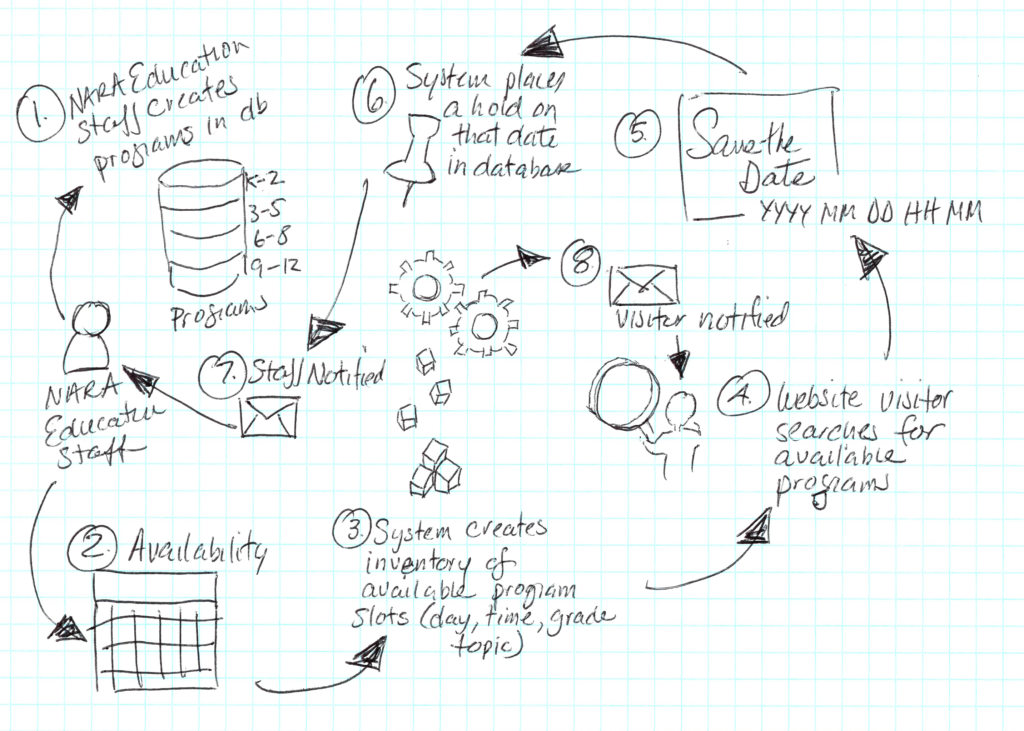 1. NARA Education
Staff creates
programs in db
K-2
3-5
6-8
9-12
Programs
NARA
Education
Staff
2. Availability
3. System creates
inventory of
available program
slots (day, time, grade
topic)
4. Website visitor
searches for
available
programs
5. Save the
Date
YYYY MM DD HH MM
6. System places
a hold on
that date
in database
7. Staff Notified
8 Visitor notified